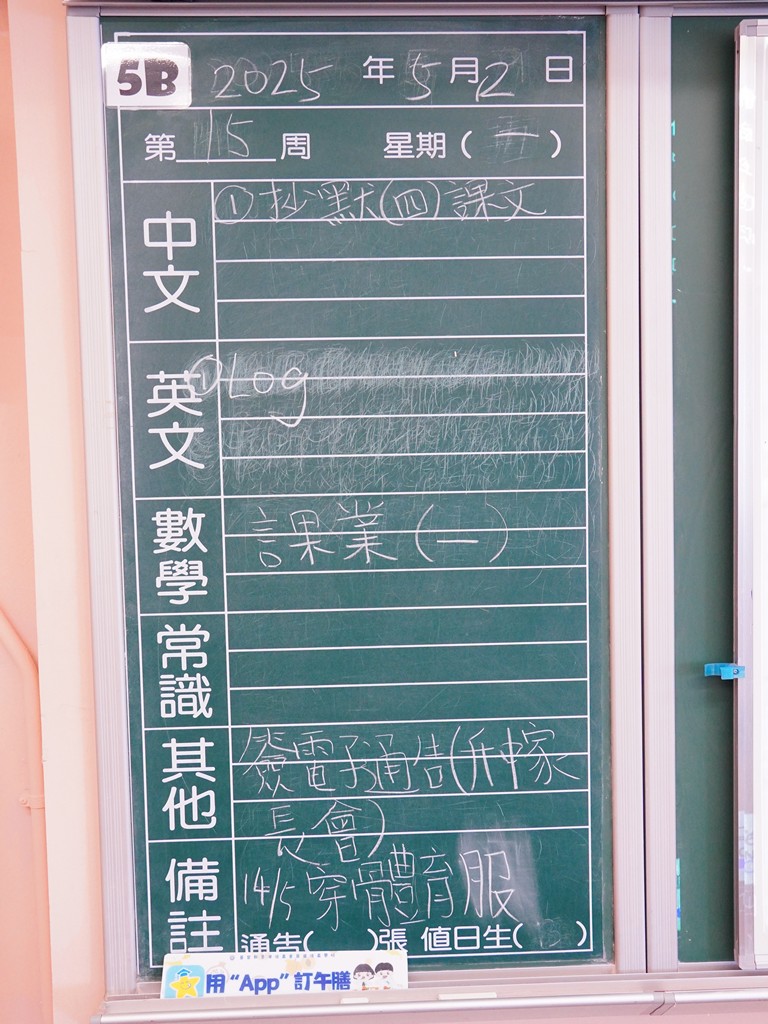 5B 2025 年 5 月 12 日
第 15 周 星期 ( 一 )
中文
① 抄默(四)課文
英文
① Log
數學
課業 (一)
常識
其他
簽電子通告(升中家
長會)
備註
14/5 穿體育服
通告( )張 值日生( )
用 “App” 訂午膳